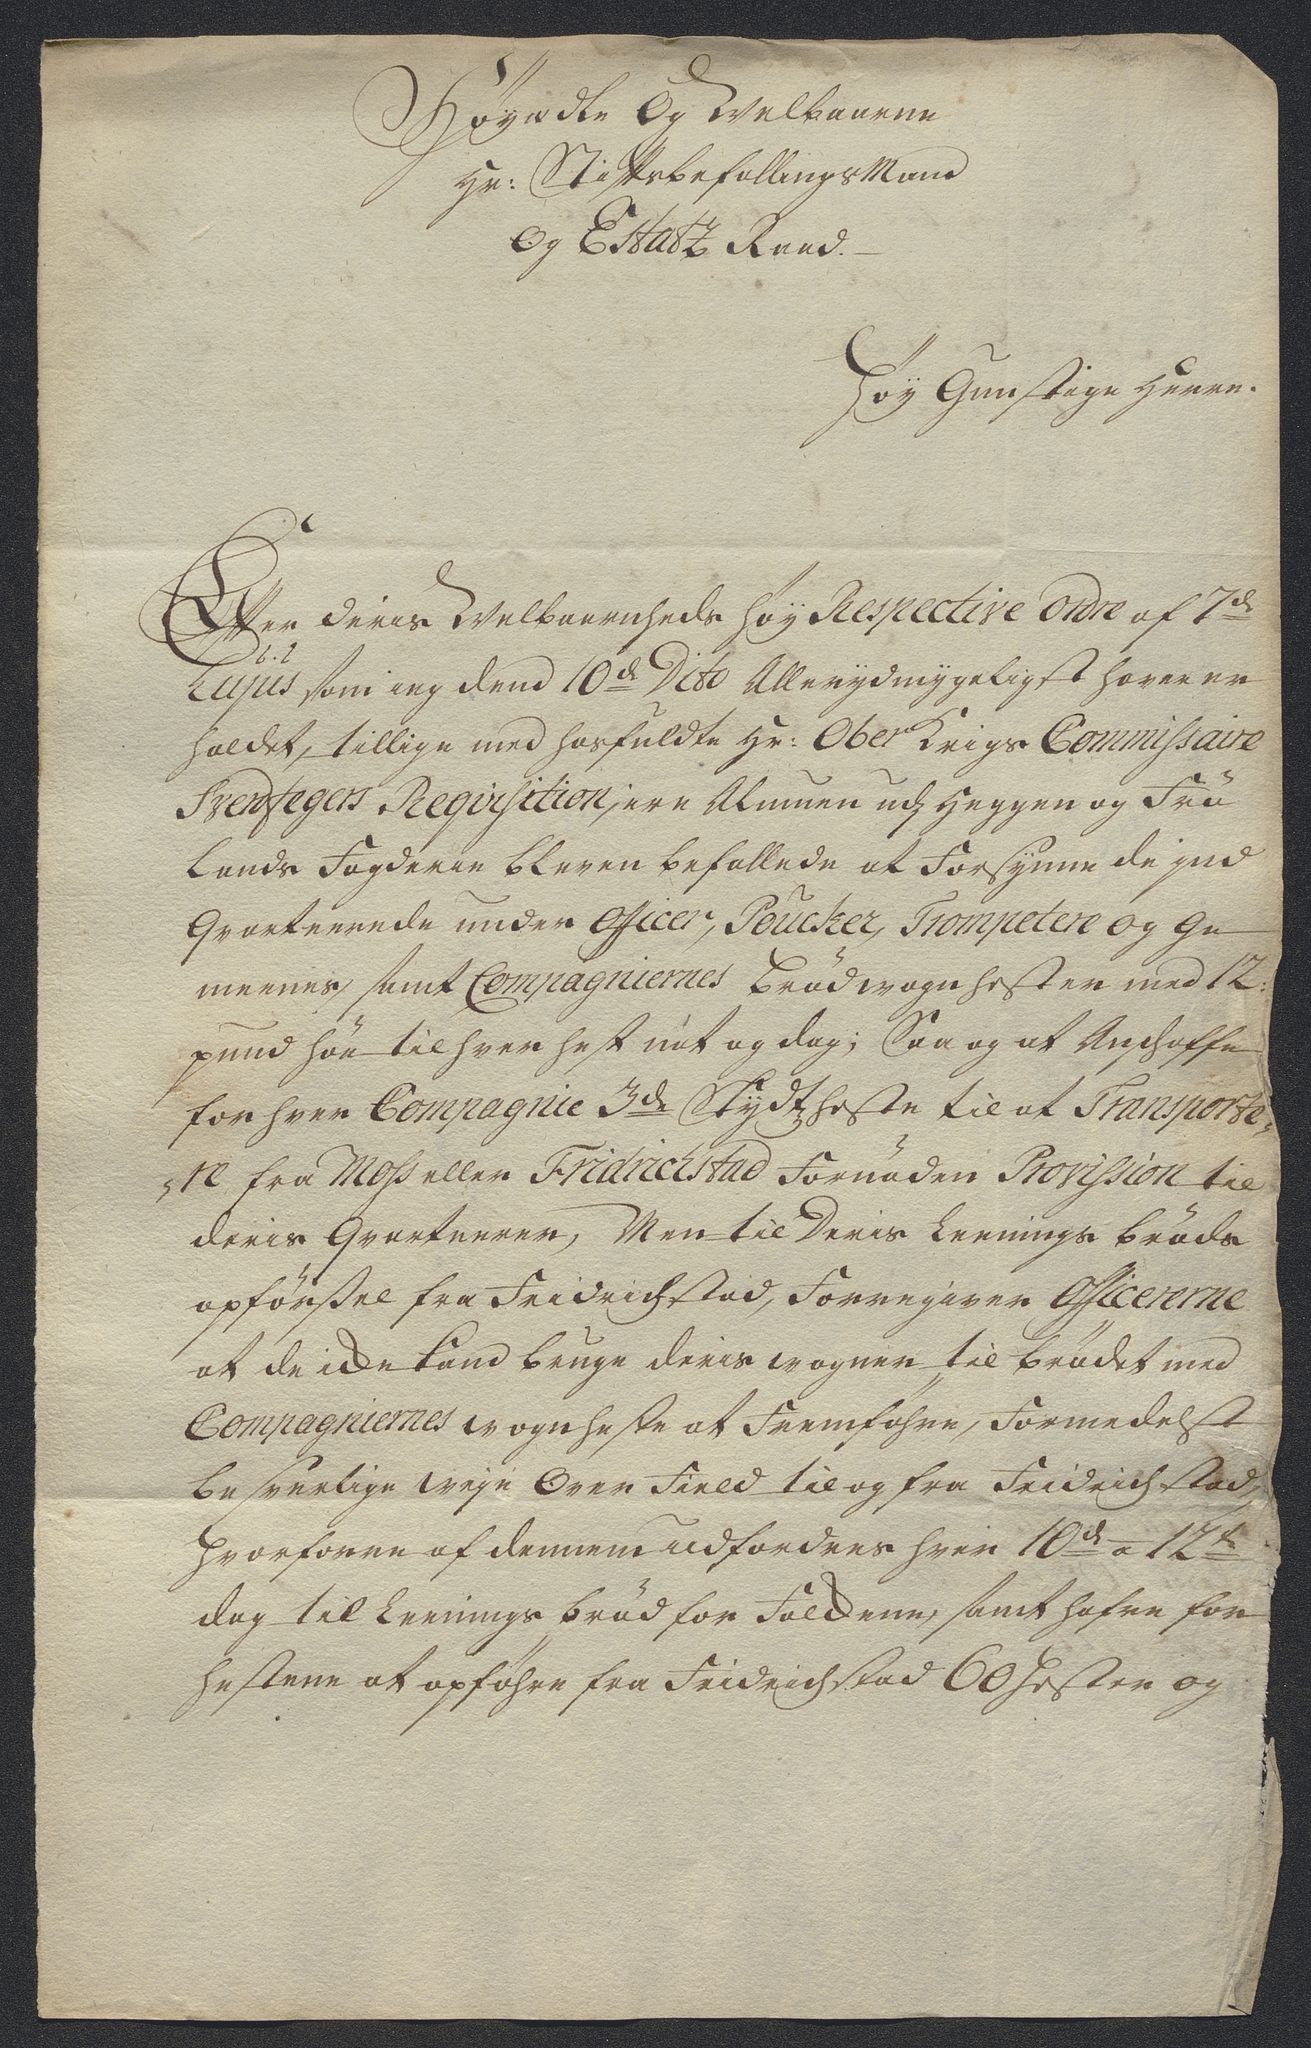 Høyædle Og Welbaarne
Hr: StiftsbefallingsMand
Og Etatz Raad.
Høy Gunstige Herre.
Efter deris Welbaarenheds høy Respective Ordre af 7de
hujus som ieg dend 10de Dito Allerydmygeligst haver er
holdet, tillige med hosfuldte Hr: Ober Krigs Commissaire
Requisition, ere Almuen udj Heggen og Frö
lands Fogderie bleven befallede at Forsyne de jnd
Qvarterede under Officer, Poucker, Trompetere og Ge
meenes, samt Compagniernes brødwogn hester med 12:
pund höe til hver hest nat og dag; Saa og at Anschaffe
for hver Compagnie 3de Skydtzheste til at Transporte,,
,,re fra Moss eller Fridrichstad Fornøden Provission til
deris Qvarteerer, Men til Deris Leenings brøds
opförsel fra Fridrichstad, Forregiver Officererne
at de icke kand bruge deris wogner til brødet med
Compagniernes wognheste at Fremføhre, Formedelst
besverlige weye Over Field til og fra Fridrichstad,
hvorforre af dennem udfordres hver 10de a 12te
dag til Leenings brød for Folckene, samt hafre for
hestene at opføhre fra Fridrichstad 60 hester og